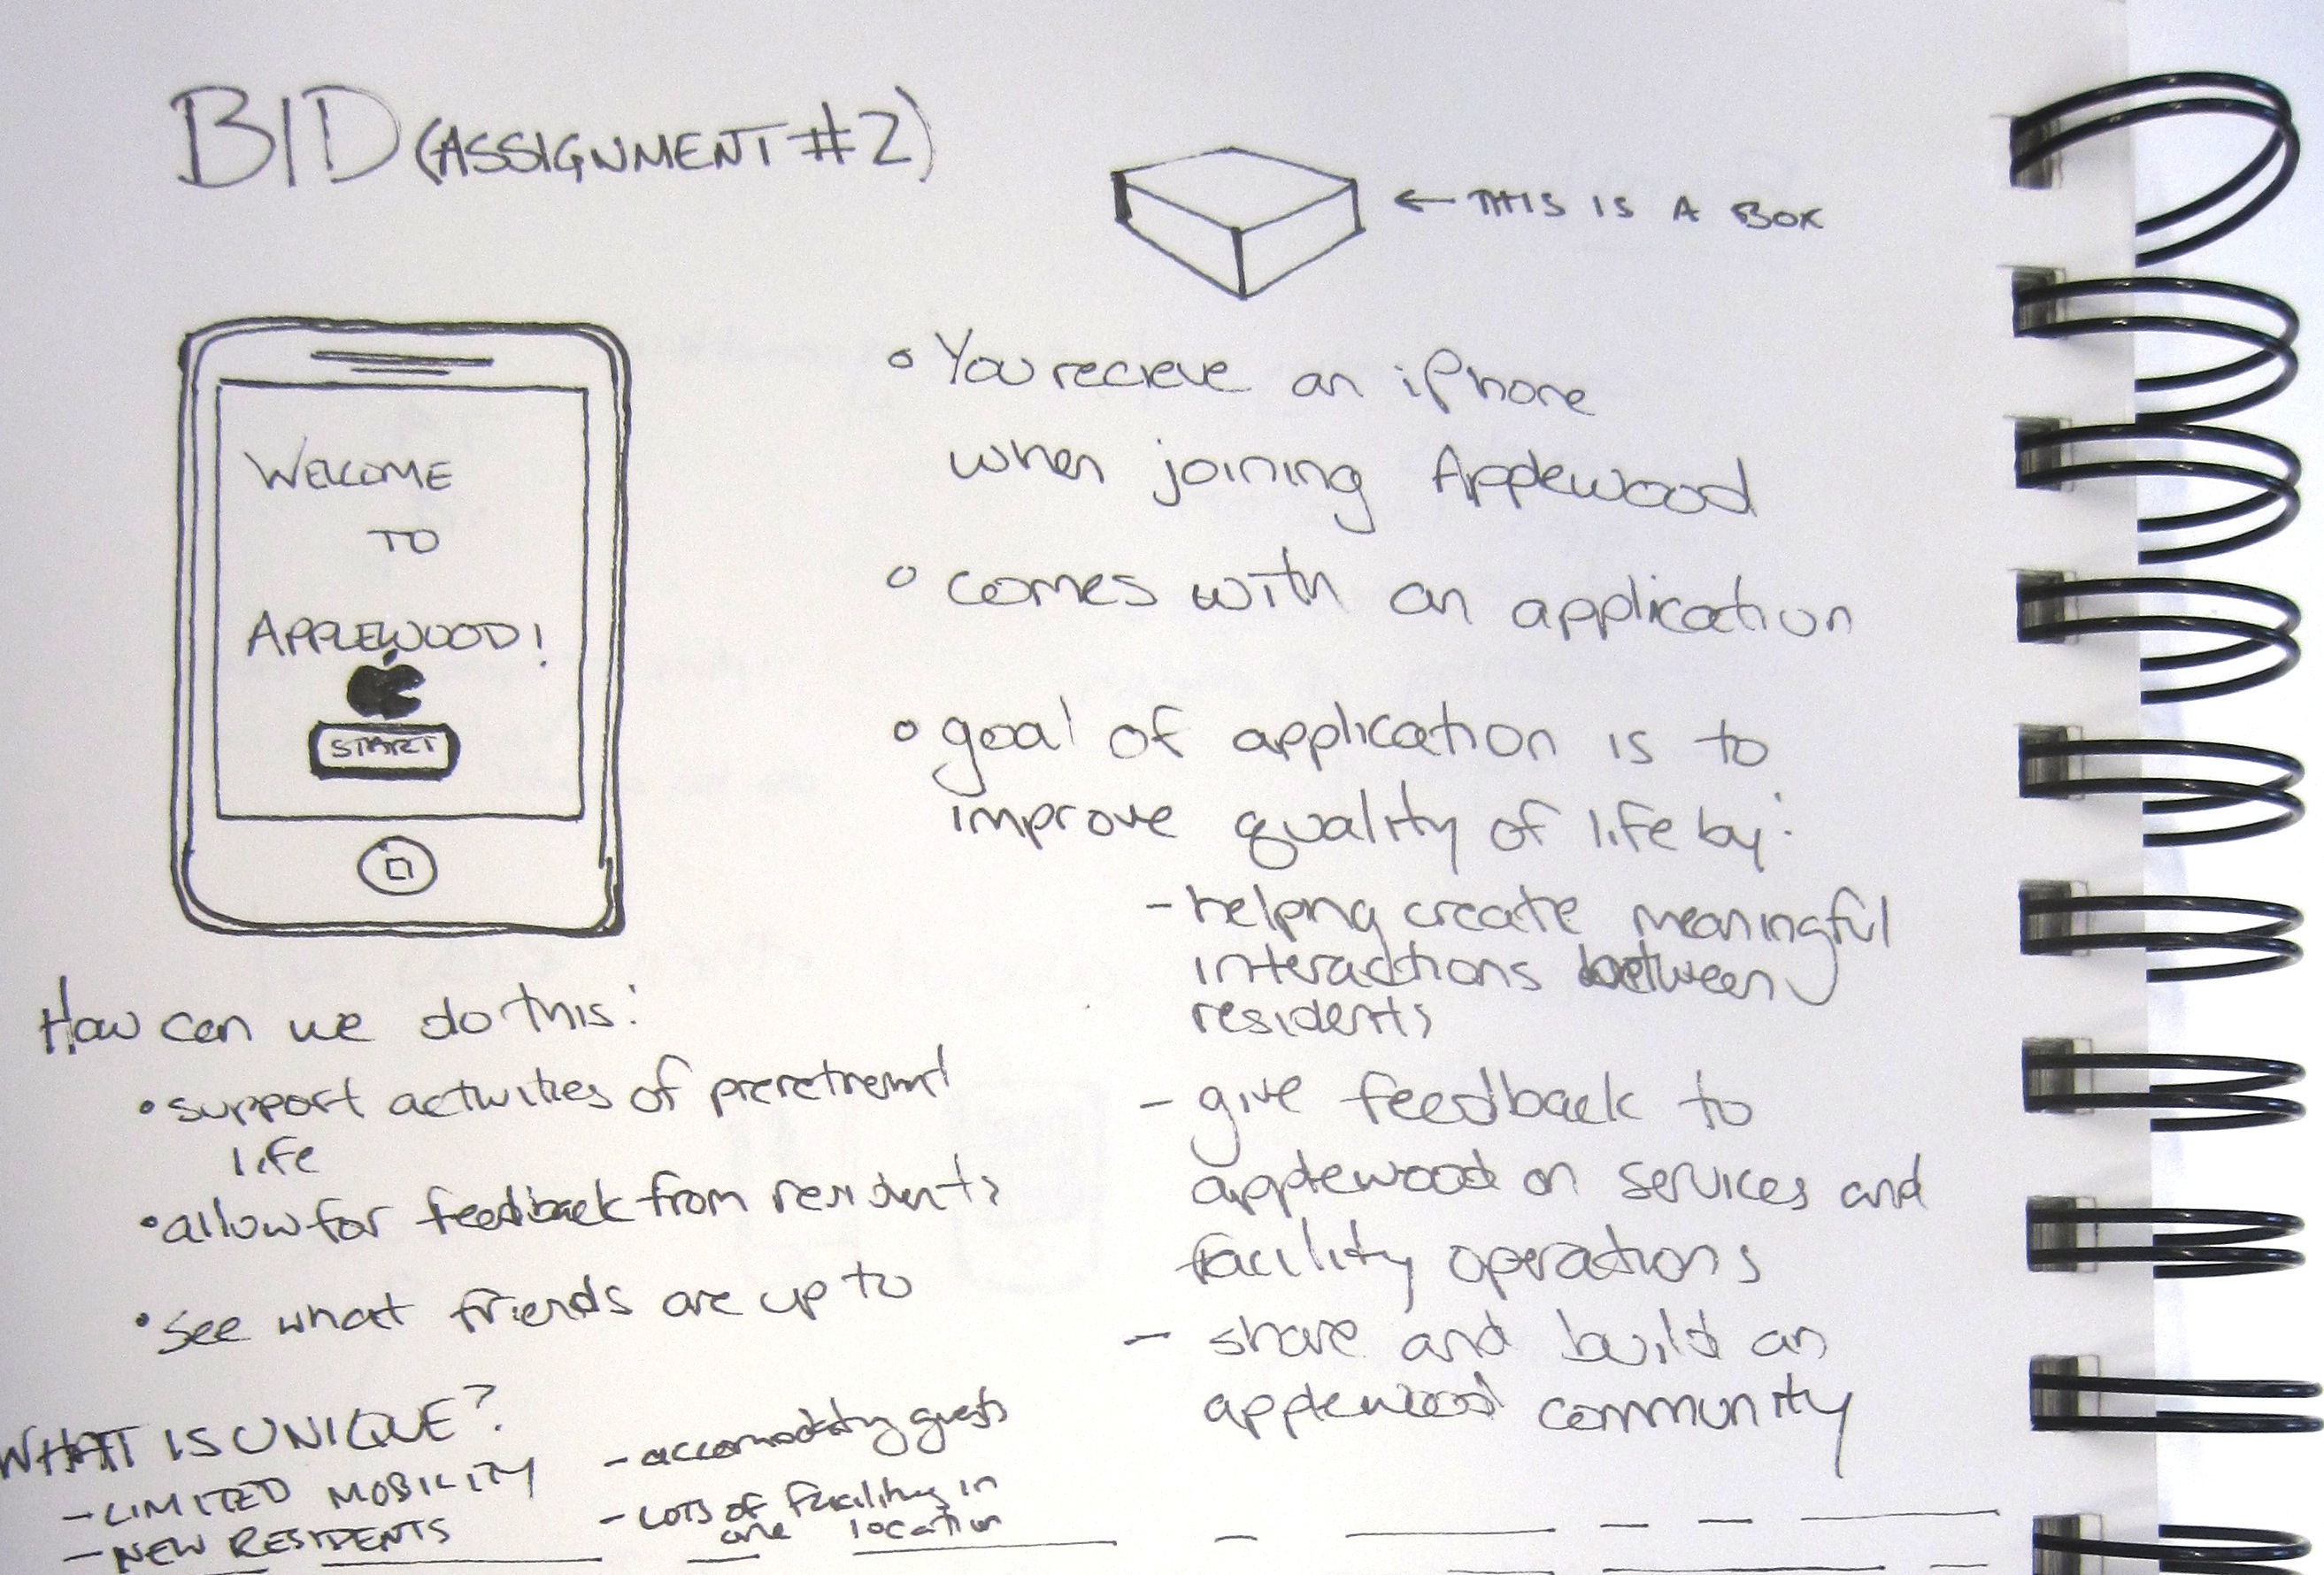 BID (ASSIGNMENT #2)
← THIS IS A BOX
WELCOME
TO
APPLEWOOD!
START
• You recieve an iPhone
when joining Applewood
• comes with an application
• goal of application is to
improve quality of life by:
- helping create meaningful
interactions between
residents
- give feedback to
applewood on services and
facility operations
- share and build an
applewood community
How can we do this:
• support activities of preretirement
life
• allow for feedback from residents
• See what friends are up to
WHAT IS UNIQUE?
- LIMITED MOBILITY
- NEW RESIDENTS
- accomodating guests
- LOTS OF facilities in
one location